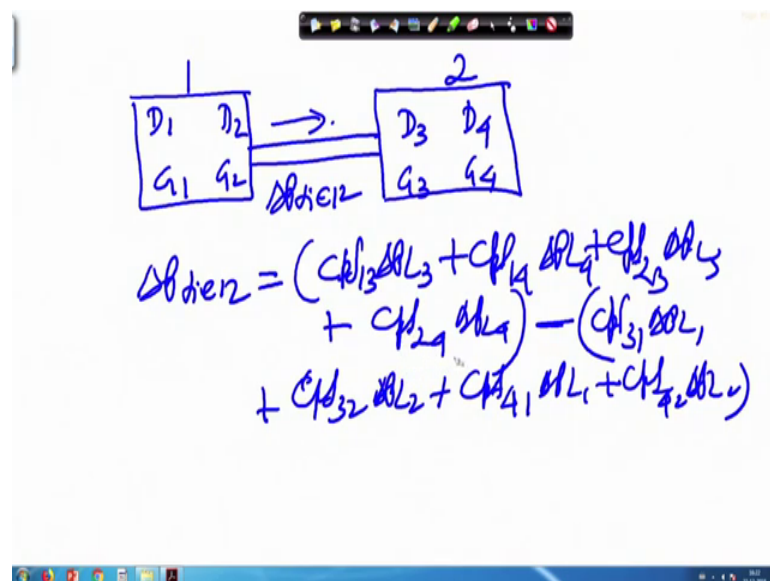 1 2
D1 D2 D3 D4
G1 G2 G3 G4
ΔPtie12
ΔPtie12 = (cpf13 ΔPL3 + cpf14 ΔPL4 + cpf23 ΔPL3
+ cpf24 ΔPL4) − (cpf31 ΔPL1
+ cpf32 ΔPL2 + cpf41 ΔPL1 + cpf42 ΔPL2)